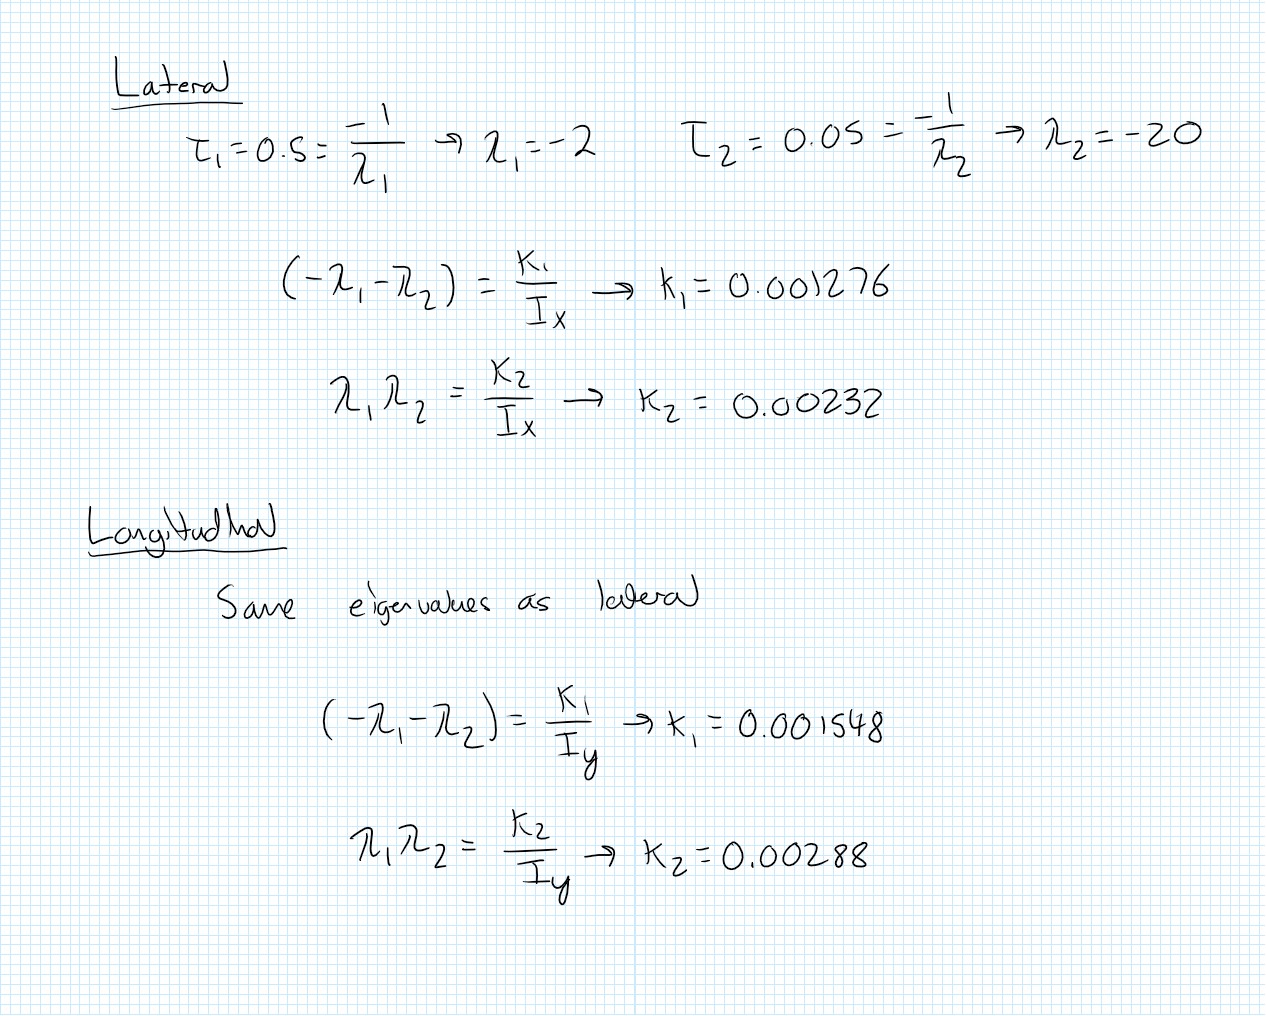 Lateral
τ₁ = 0.5 = -1/λ₁ → λ₁ = -2    τ₂ = 0.05 = -1/λ₂ → λ₂ = -20
(-λ₁-λ₂) = K₁/Iₓ → K₁ = 0.001276
λ₁λ₂ = K₂/Iₓ → K₂ = 0.00232
Longitudinal
Same eigenvalues as lateral
(-λ₁-λ₂) = K₁/I_y → K₁ = 0.001548
λ₁λ₂ = K₂/I_y → K₂ = 0.00288